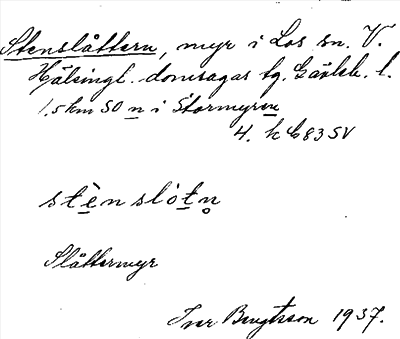 Stenslåttern, myr i Los sn. V.
Hälsingl. domsagas tg. Gävleb. l.
1,5 km SO n i Stormyren
4. k G 83 SV
stènslòtn̥
Slåttermyr
Ivar Bengtsson 1937.